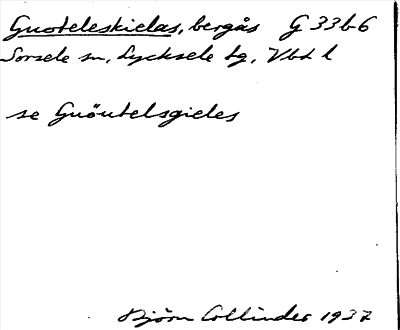 Guoteleskielas, bergås G 33b6
Sorsele sn, Lycksele tg, Vbd l
se Guöutelsgieles
Björn Collinder 1937